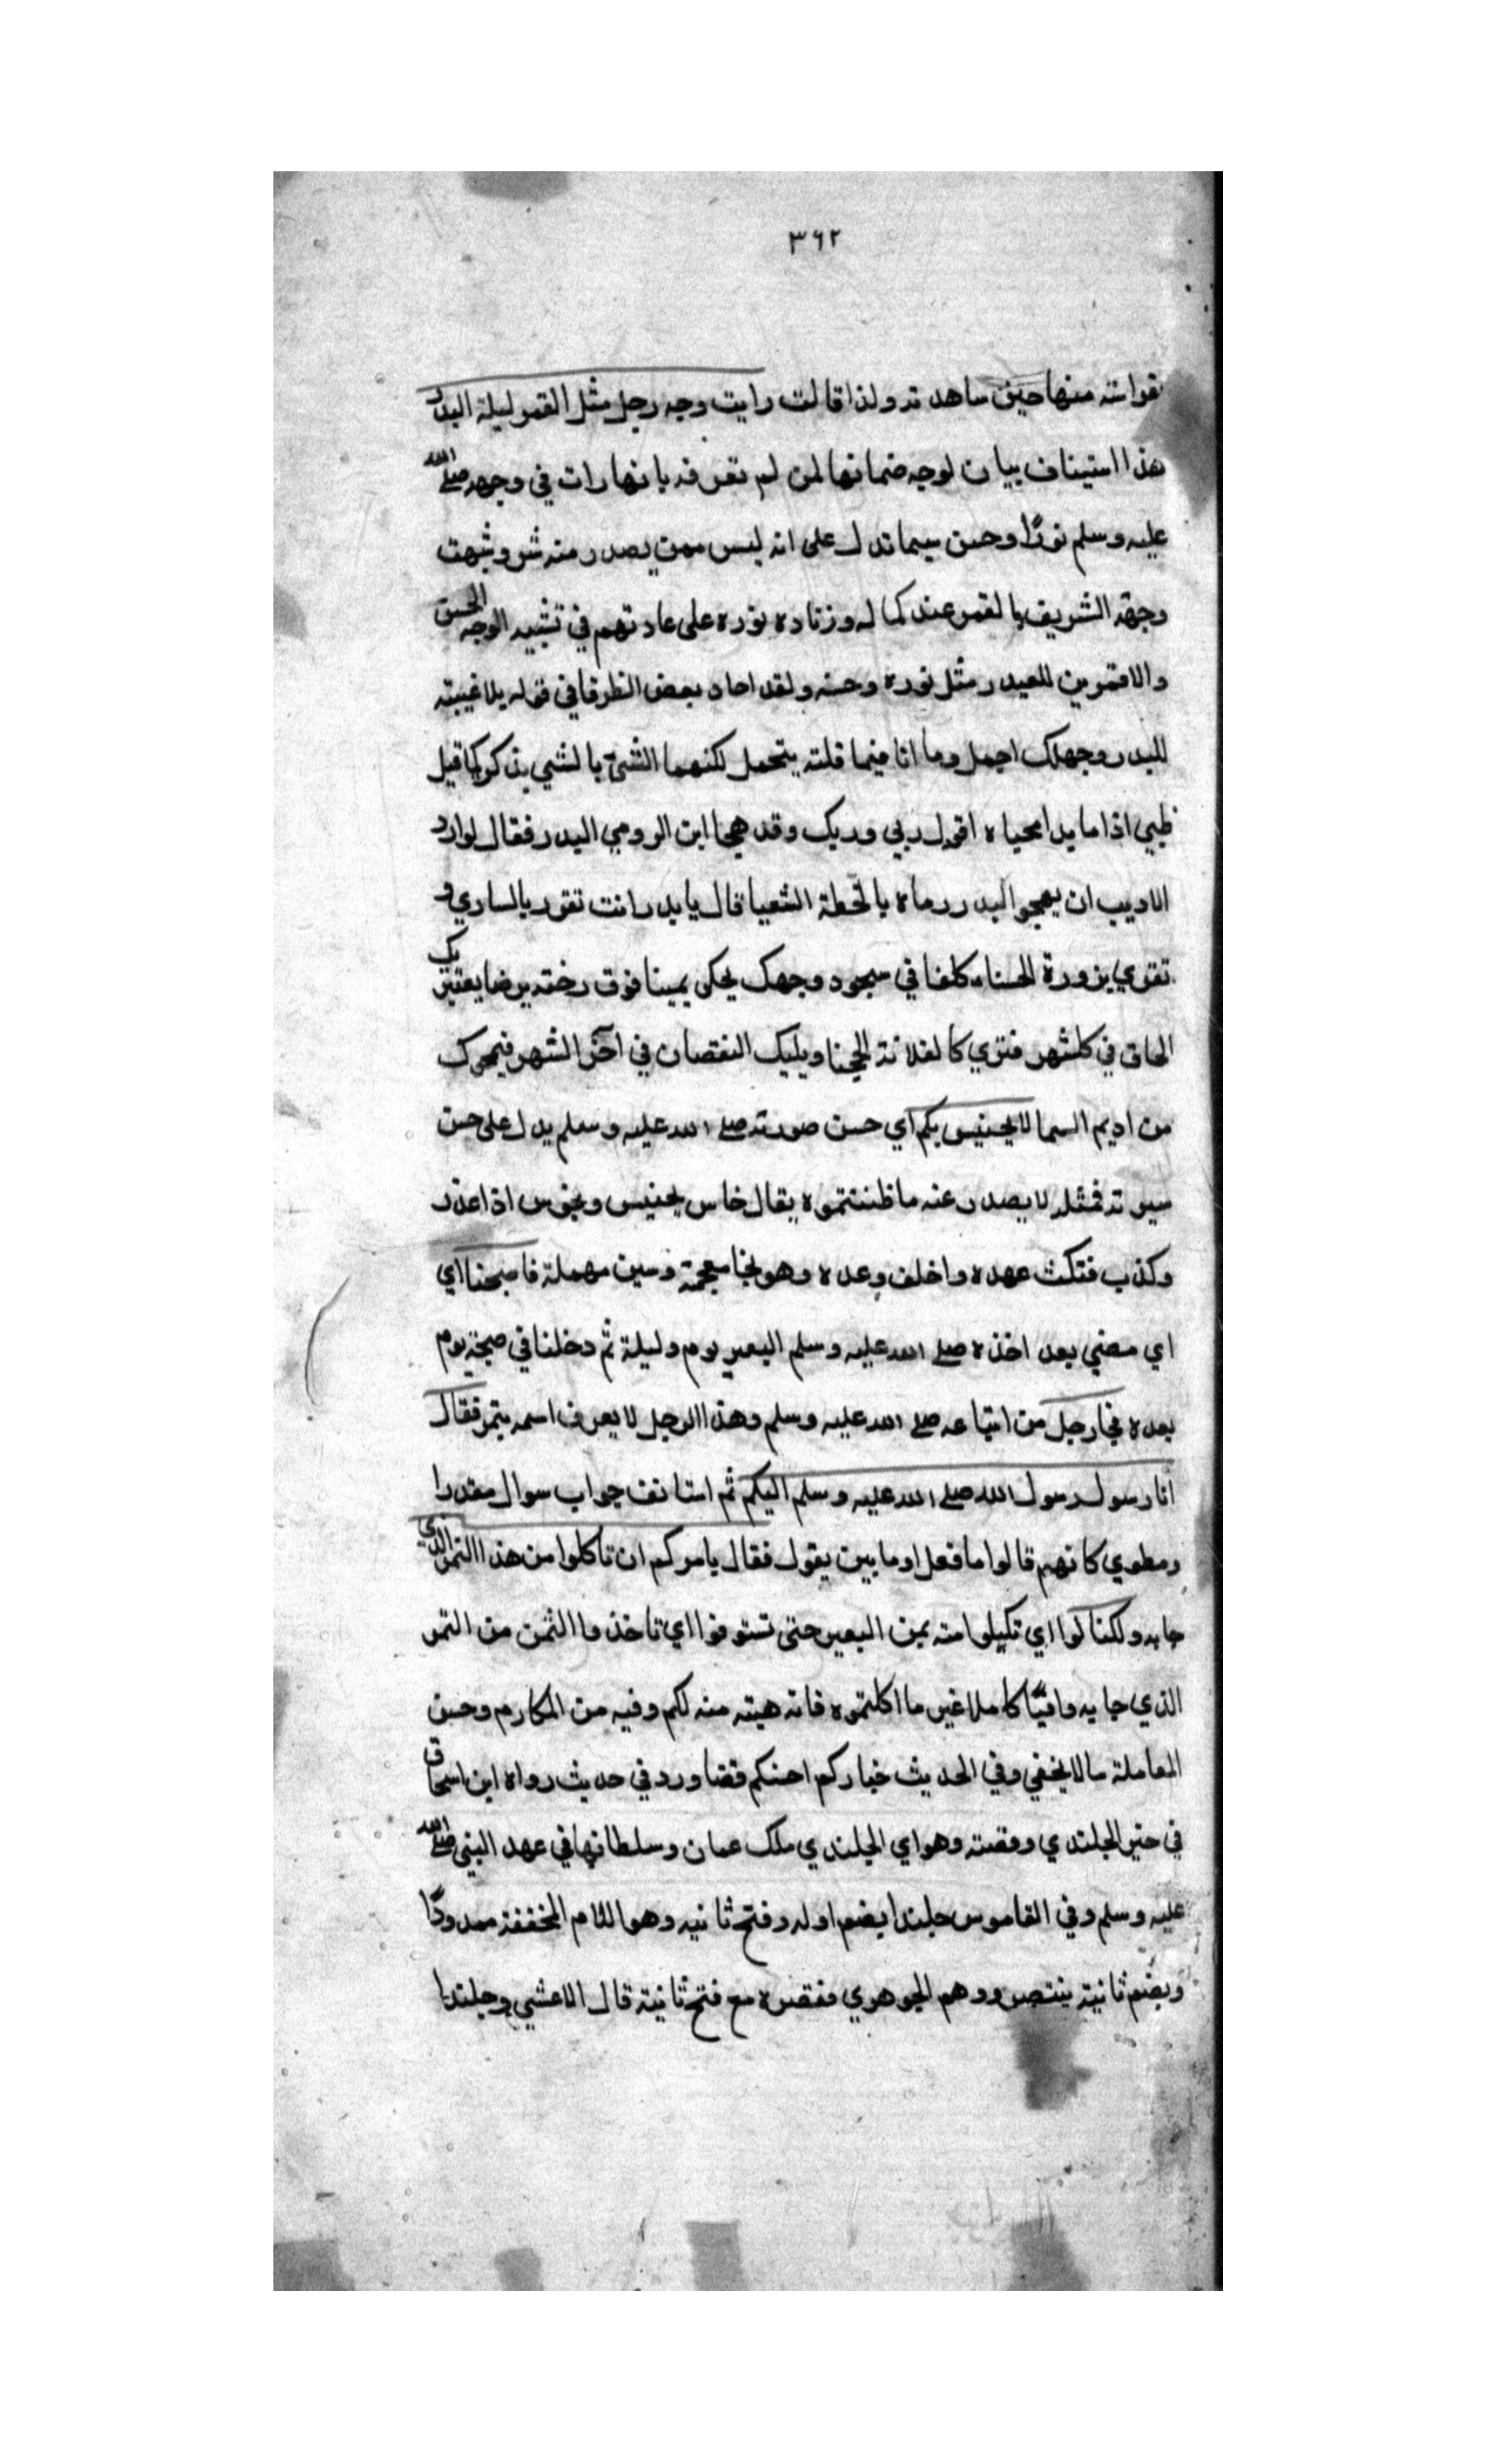 ٣٦٢
بقراسته منها حين ساهد ته ولذا قالت رايت وجه رجل مثل القمر ليلة البدر
هذا استيناف بيان لوجه ضمانها لمن لم تعرفه بانها رات في وجهه صلى الله
عليه وسلم نورًا وحسن سيما تدل على انه ليس ممن يصدر منه شر وشبهت
وجهه الشريف بالقمر عند كماله وزياده نوره على عادتهم في تشبيه الوجه الحسن
والا فمن اين للبدر مثل نوره وحسنه ولقد اجاد بعض الظرفا في قوله
للبدر وجهك اجمل وما انا فيما قلته يتحمل لكنهما الشئ بالشي يذكر كما قيل
ظبي اذا ما بدا محياه اقول ربي وربك وقد هجا ابن الرومي البدر فقال لو اراد
الاديب ان يهجو البدر رماه بالخطة الشعيا قال يا بدر انت تغور بالساري و
تغري بزورة الحسناء كلفا في سجود وجهك يحكى يمينا فوق
المحاق في كلشهر فتري كالقلانة الحجنا ويليك النقصان في اخر الشهر فيمحوك
من اديم السما لا يخيس بكم اي حسن صورته صلى الله عليه وسلم يدل على حسن
سيرته فمثله لا يصدر عنه ما ظننتموه يقال خاس يخيس ويخوس اذا غدر
وكذب فنكث عهده واخلف وعده وهو بخا معجمة وسين مهملة فاصبحنا اي
اي مضي بعد اخذه صلى الله عليه وسلم البعير يوم وليلة ثم دخلنا في صبحة يوم
بعده فجا رجل من اتباعه صلى الله عليه وسلم وهذا الرجل لا يعرف اسمه بتمر فقال
انا رسول رسول الله صلى الله عليه وسلم اليكم ثم استانف جواب سوال مقدرا
ومطوي كانهم قالوا ما فعل او ما بين يقول فقال يامركم ان تاكلوا من هذا التمر الذي
جا به ولكنا لوا اي تكيلوا منه بمن البعير حتى تستوفوا اي تاخذ وا الثمن من التمر
الذي جا به وافيًا كاملا غير ما اكلتموه فانه هبته منه لكم وفيه من المكارم وحسن
المعاملة ما لا يخفي وفي الحديث خياركم احسنكم قضا ورد في حديث رواه ابن اسحاق
في خبر الجلندي وقصته وهو اي الجلندي ملك عمان وسلطانها في عهد النبي صلى الله
عليه وسلم وفي القاموس جلندا بضم اوله وفتح ثانيه وهو اللام المخففة ممدودًا
وبضم ثانية ينتصر ووهم الجوهري فقصره مع فتح ثانية قال الاعشي وجلندا